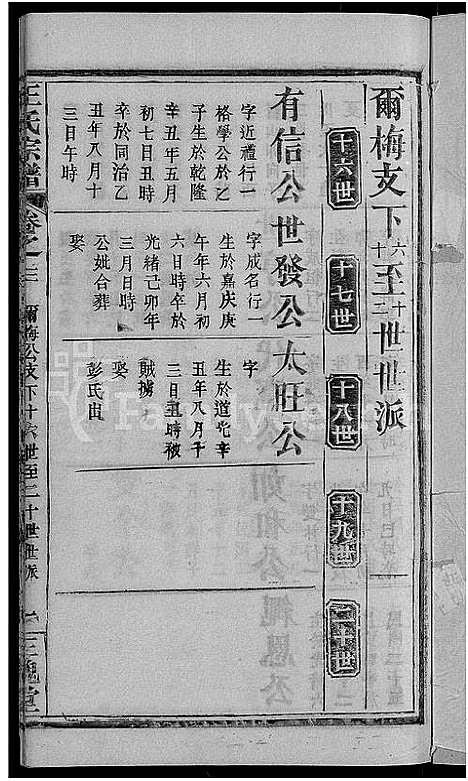 爾梅支下十六至二十世世派
十六世
十七世
十八世
十九世
二十世
有信公世發公太旺公
字近禮行一
格學公於乙
子生於乾隆
辛丑年五月
初七日丑時
卒於同治乙
丑年八月十
三日午時
字成名行一
生於嘉庆庚
午年六月初
六日時卒於
光緒己卯年
三月日時
公妣合葬
娶
字
生於道光辛
五年八月千
三日丑時被
賊擄
娶
彭氏出
王氏宗譜
卷之三
爾梅公支下十六世至二十世世派
一
三槐堂